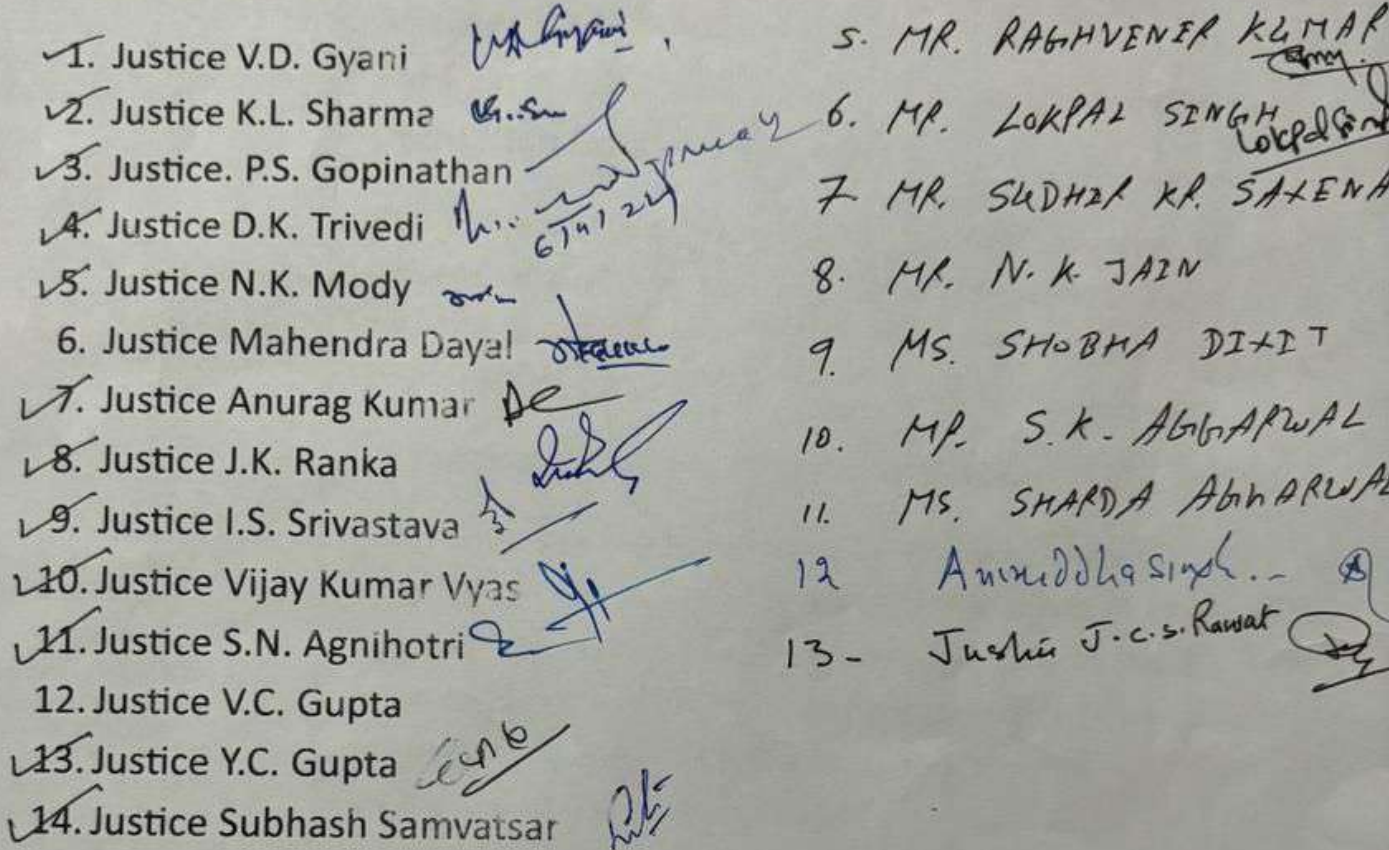 1. Justice V.D. Gyani
2. Justice K.L. Sharma
3. Justice. P.S. Gopinathan
4. Justice D.K. Trivedi
5. Justice N.K. Mody
6. Justice Mahendra Dayal
7. Justice Anurag Kumar
8. Justice J.K. Ranka
9. Justice I.S. Srivastava
10. Justice Vijay Kumar Vyas
11. Justice S.N. Agnihotri
12. Justice V.C. Gupta
13. Justice Y.C. Gupta
14. Justice Subhash Samvatsar
5. MR. KUMAR
6. MR. LOKPAL SINGH
Lokpal
7 MR. SUDHIR KR. SAXENA
8. MR. N. K. JAIN
9. MS. SHOBHA DIXIT
10. MR. S.K. AGGARWAL
11. MS. SHARDA AGGARWAL
12 Aniruddha Singh
13- J.C.S. Rawat